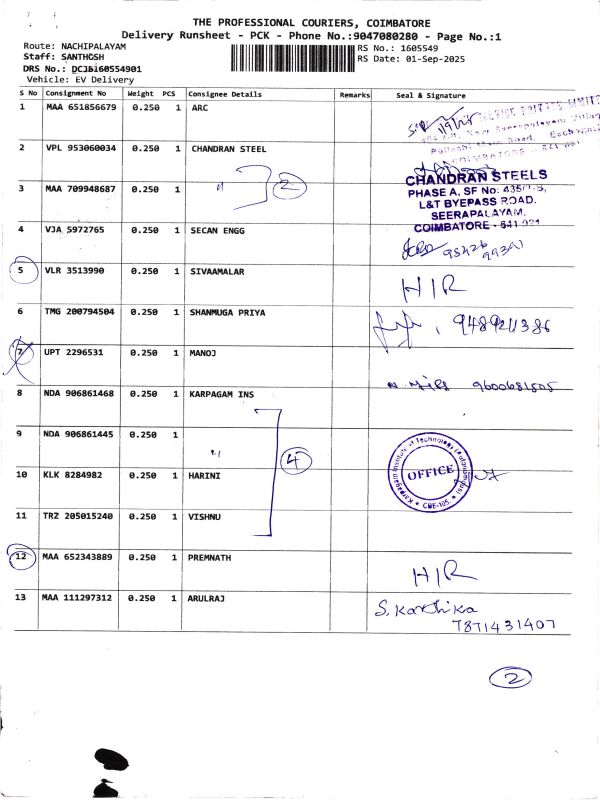 THE PROFESSIONAL COURIERS, COIMBATORE
Delivery Runsheet - PCK - Phone No.:9047080280 - Page No.:1
Route: NACHIPALAYAM
RS No.: 1605549
Staff: SANTHOSH
RS Date: 01-Sep-2025
DRS No.:
Vehicle: EV Delivery
S No Consignment No Weight PCS Consignee Details Remarks Seal & Signature
1 MAA 651856679 0.250 1 ARC
2 VPL 953060034 0.250 1 CHANDRAN STEEL
COIMBATORE
2
CHANDRAN STEELS
3 MAA 709948687 0.250 1 "
PHASE A, SF No:
L&T BYEPASS ROAD.
SEERAPALAYAM.
4 VJA 5972765 0.250 1 SECAN ENGG
COIMBATORE - 641 021
5 VLR 3513990 0.250 1 SIVAAMALAR
H/R
6 TMG 200794504 0.250 1 SHANMUGA PRIYA
7 UPT 2296531 0.250 1 MANOJ
8 NDA 906861468 0.250 1 KARPAGAM INS
9 NDA 906861445 0.250 1 "
4
Karpagam Institute of Technology (Autonomous)
OFFICE
CBE-105.
10 KLK 8284982 0.250 1 HARINI
11 TRZ 205015240 0.250 1 VISHNU
12 MAA 652343889 0.250 1 PREMNATH
H/R
13 MAA 111297312 0.250 1 ARULRAJ
S. Karthika
7871431407
2